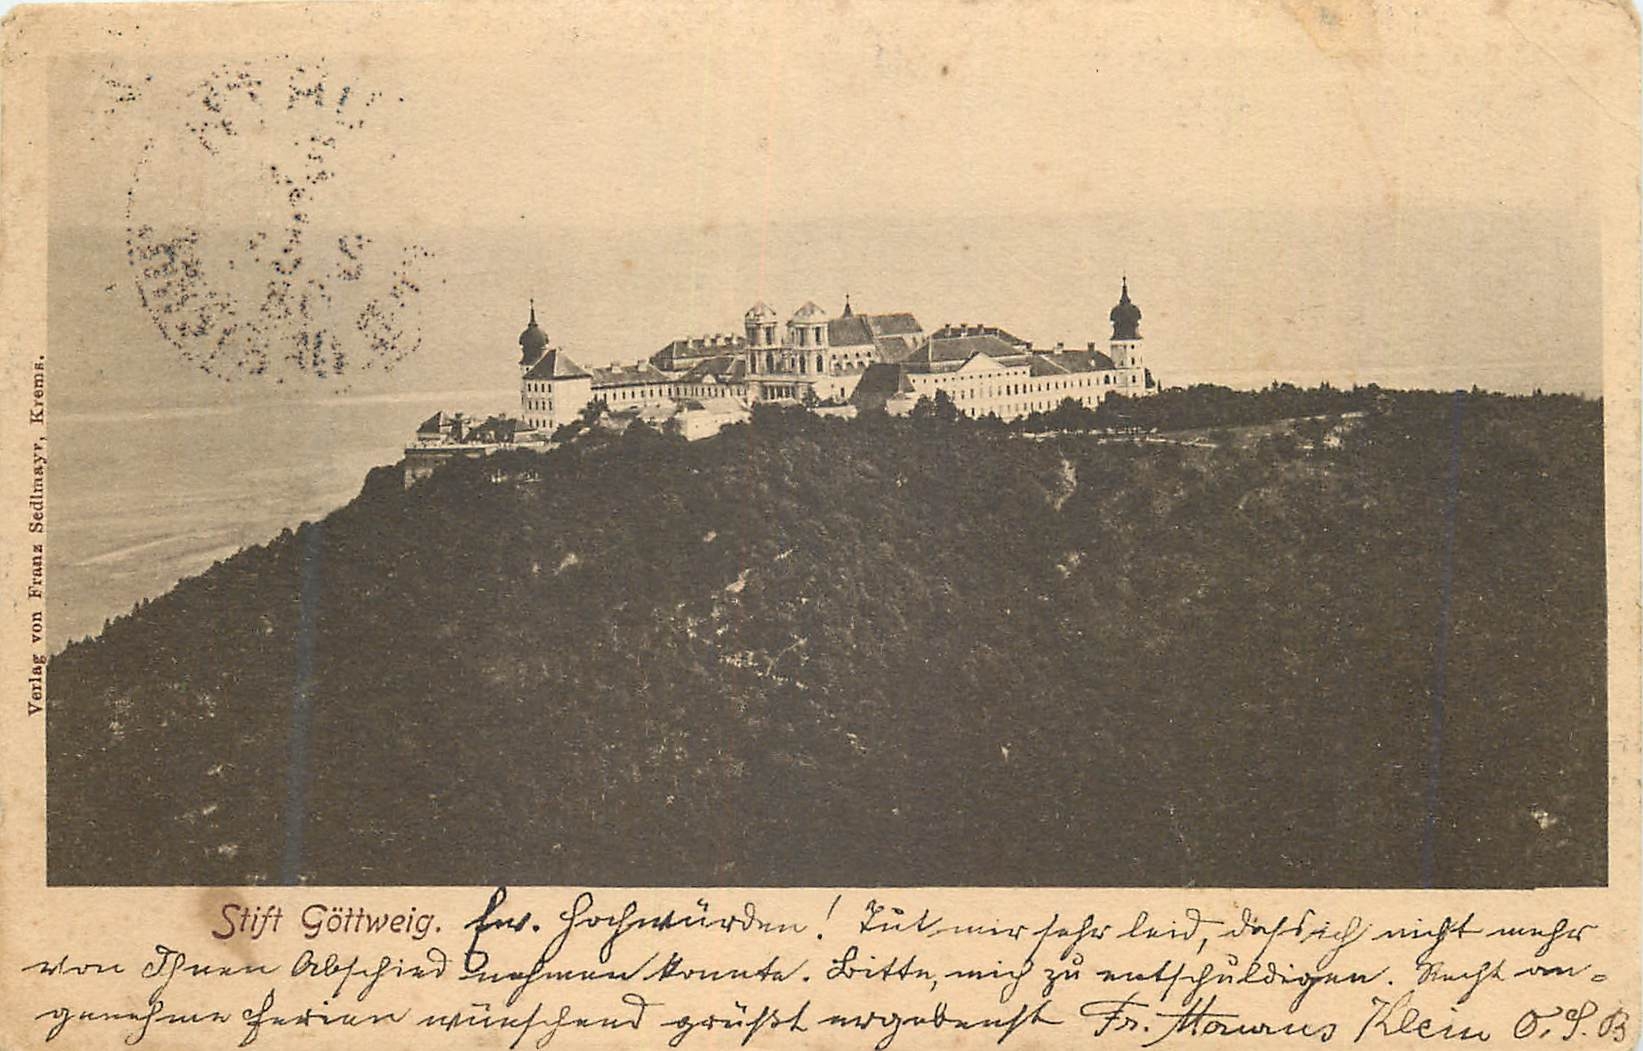 Verlag von Franz Sedlmayr, Krems.
Stift Göttweig. Ew. Hochwürden! Tut mir sehr leid, daß ich nicht mehr
von Ihnen Abschied nehmen konnte. Bitte, mich zu entschuldigen. Recht an-
genehme Ferien wünschend grüßt ergebenst Fr. Maurus Klein O.S.B